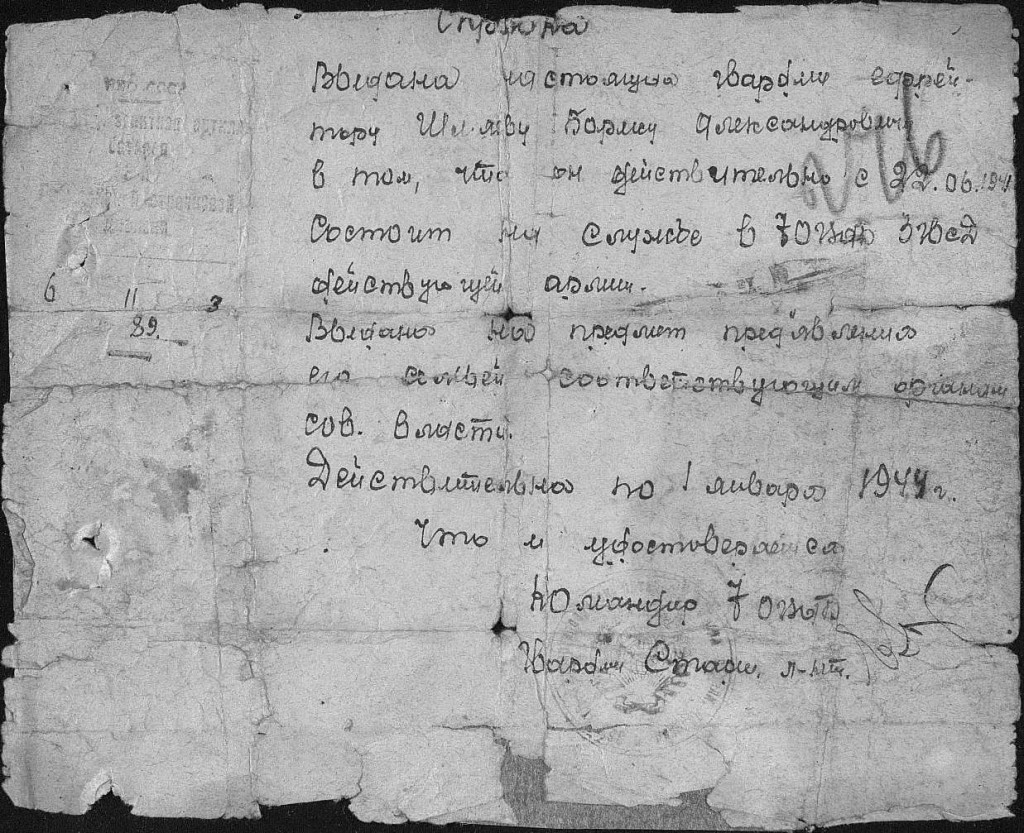 Справка
Выдана настоящая гвардии ефрей-
тору Борису Александровичу
в том, что он действительно с 22.06.1941
Состоит на службе в 7 3 гвсд
действующей армии.
6 11 3
89.
Выдана на предмет предъявления
его семьей соответствующим органам
сов. власти.
Действительна по 1 января 1944 г.
Что и удостоверяется
Командир 7
Гвардии Старш. л-нт.